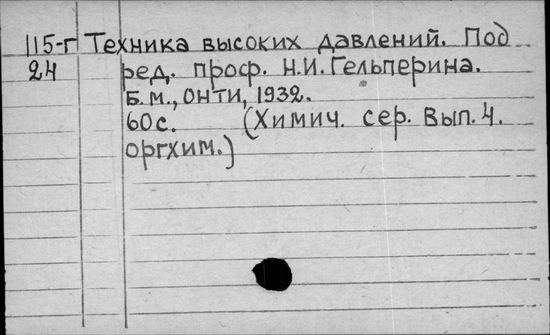 115-г Техника высоких давлений. Под
24 ред. проф. Н.И. Гельперина.
Б.м., ОНТИ, 1932.
60с. (Химич. сер. Вып. 4.
оргхим.)